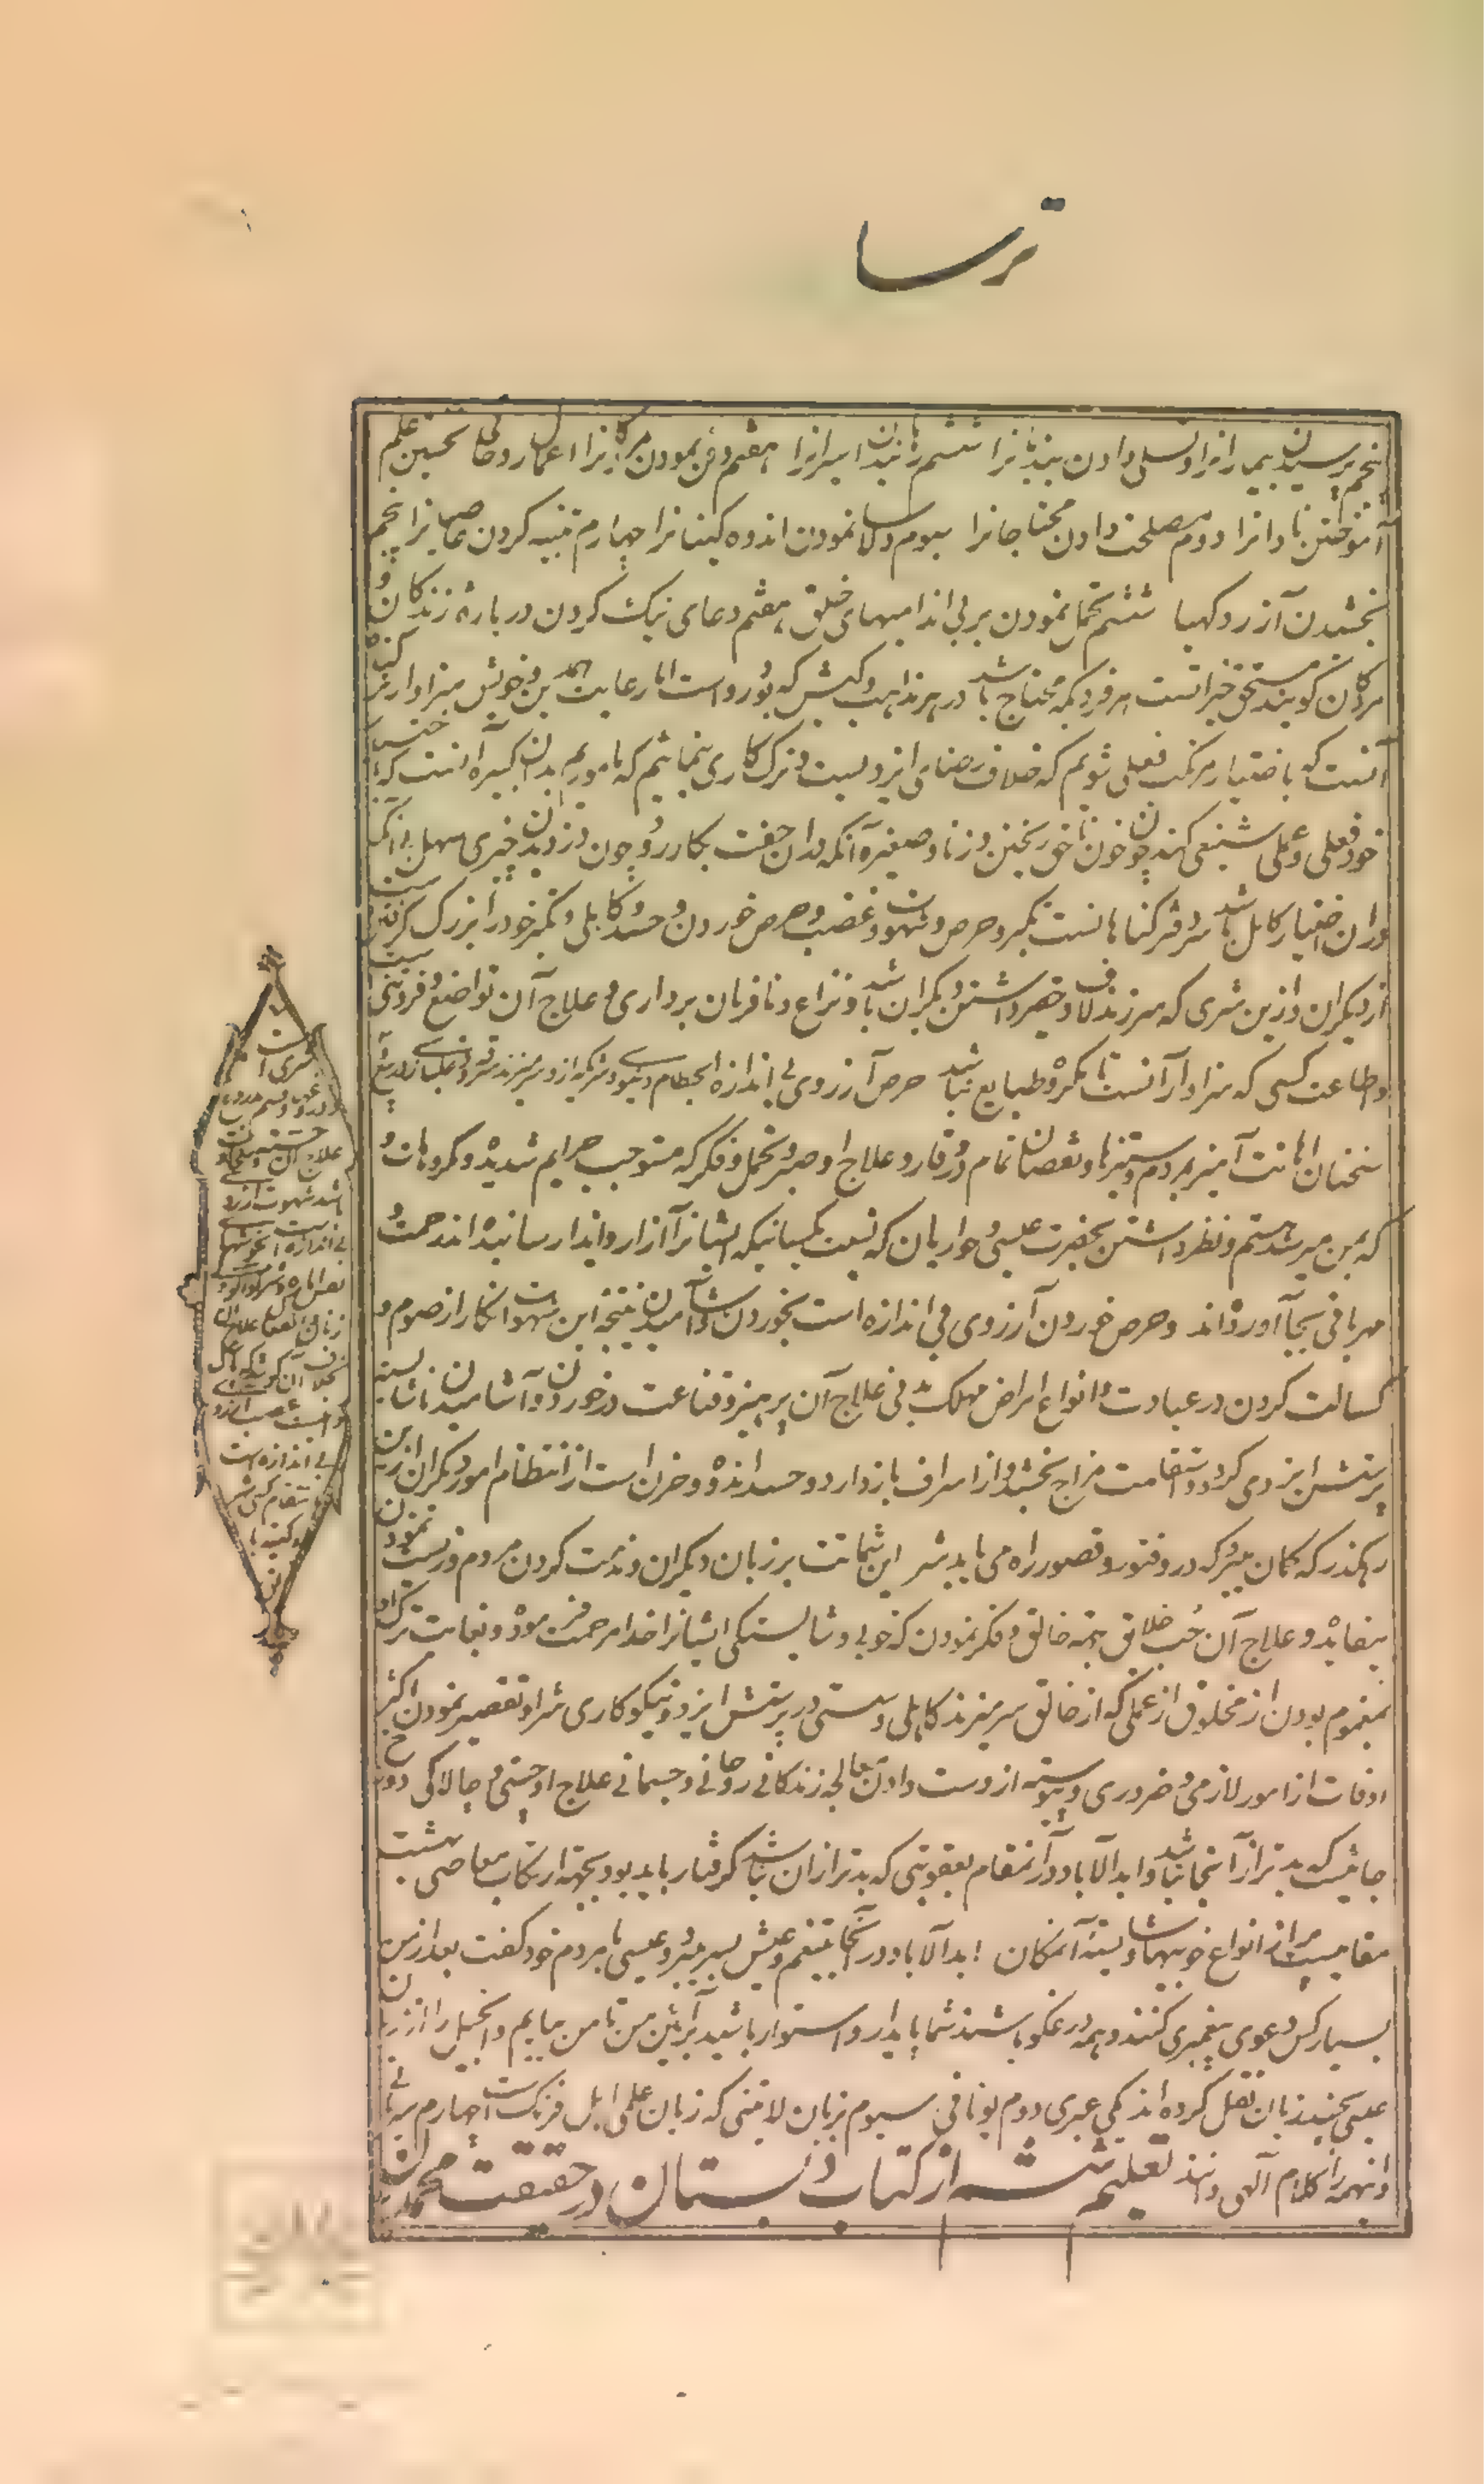 ترسا
پنجم پرسیدن بیمارانرا و تسلی دادن بندیانرا ششم رهانیدن اسیرانرا هفتم دفن نمودن مردگانرا اعمال روحانی نخستین علم
آموختن نادانرا دوم مصلحت دادن محتاجانرا سیوم دلاسا نمودن اندوه گینانرا چهارم تنبیه کردن عاصیانرا پنجم
بخشیدن آزردگیها ششم تحمل نمودن بر بی اندامیهای خلق هفتم دعای نیک کردن درباره زندگان و
مردگان گویند مستحق خیر آنست هر فردیکه محتاج باشد در هر مذاهب و کیش که بود رواست اما رعایت همدین و خویش سزاوارتر گناه
آنست که باختیار مرتکب فعلی شویم که خلاف رضای ایزدیست و ترک کاری نمائیم که ماموریم بدان کبیره آنست که
خود فعلی و عملی شنیعی کند چو خون ناحق ریختن و زنا و صغیره آنکه بدان خفت بکار رود چون دزدیدن چیزی سهل و آنکه
دران اختیار کامل باشد سر دفتر گناهانست تکبر و حرص و شهوت و غضب و حرص خوردن و حسد و کاهلی و تکبر خود را بزرگ گرفتن
از دیگران و ازین شری که سر زند لاف و حقیر داشتن دیگران باشد و نزاع و نافرمان برداری و علاج آن تواضع و فروتنی
و اطاعت کسی که سزاوار آنست تا مکروه طبایع نباشد حرص آرزوی بی اندازه بحطام دنیوی
سخنان اهانت آمیز بمردم و ستیزها و نقصان تمام در وقار و علاج او صبر و تحمل و فکر که مستوجب جرایم شدیده و مکروهات و
که بمن میرسد هستم و نظر داشتن بحضرت عیسی و حواریان که نسبت بکسانیکه ایشانرا آزار و ایذا رسانیده اند رحمت و
مهربانی بجا آورده اند و حرص خوردن آرزوی بی اندازه است بخوردن و آشامیدن نتیجه این شهوت انکار از صوم و
کسالت کردن در عبادت و انواع امراض مهلک بدنی علاج آن پرهیز و قناعت در خوردن و آشامیدن تا شایسته
پرستش ایزدی گردد و استقامت مزاج بخشد و از اسراف باز دارد و حسد اندوه و حزن است از انتظام امور دیگران ازین
رهگذر که گمان میبرد که درو فتور و قصور راه می یابد شر این شماتت بر زبان دیگران و مذمت کردن مردم و زیست نمودن
بیفایده و علاج آن حب خلائق بجهة خالق و فکر نمودن که خوبی و شایستگی ایشانرا خدا مرحمت فرموده و نهایت ترک او
مغموم بودن از مخلوق از عملی که از خالق سر میزند کاهلی و سستی در پرستش ایزد و نیکوکاری شر او تقصیر نمودن اکثر
اوقات از امور لازمی و ضروری و پیوسته از دست دادن معالجه زندگانی روحانی و جسمانی علاج او چستی و چالاکی دوزخ
جائیست که بدتر از آنجا نباشد و ابدالآباد در آنمقام بعقوبتی که بدتر ازان نباشد گرفتار باید بود بجهة ارتکاب معاصی بهشت
مقامیست پر از انواع خوبیها و شایسته آنمکان ابدالآباد در آنجا بتنعم و عیش بسر میبرد و عیسی با مردم خود گفت بعد از من
بسیار کس دعوی پیغمبری کنند و همه دروغگو باشند شما پایدار و استوار باشید بر آئین من تا من بیایم و انجیل را از زبان
عیسی بچند زبان نقل کرده اند یکی عبری دوم یونانی سیوم بزبان لاتنی که زبان علمی اهل فرنگ است چهارم سریانی
و اینهمه را کلام آلهی دانند تعلیم ششم از کتاب دبستان در حقیقت محمدیان